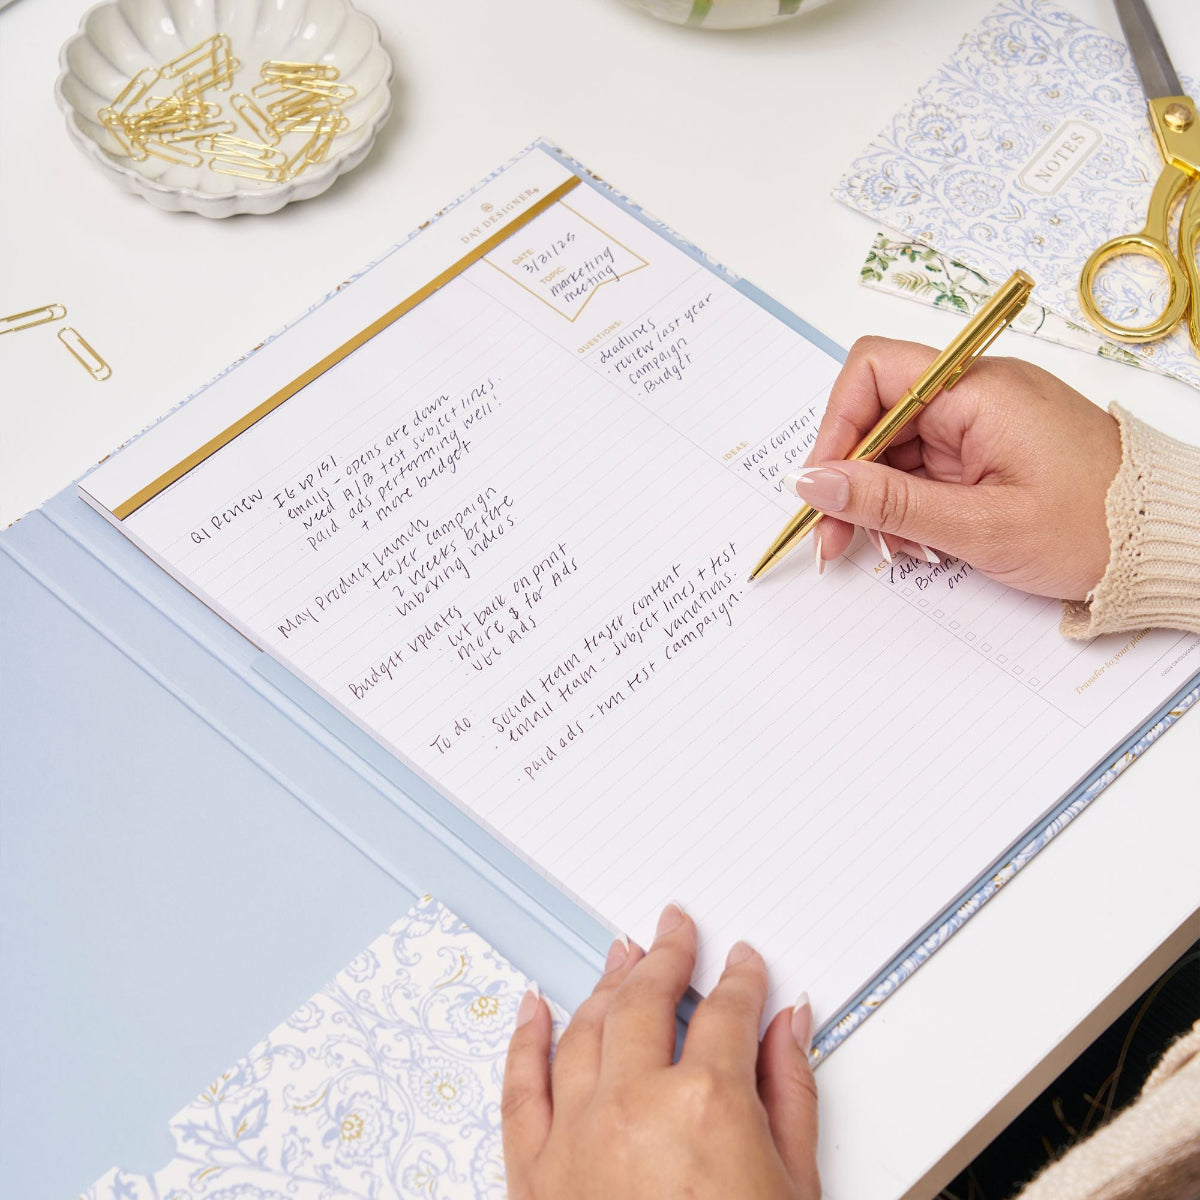 DAY DESIGNER®
DATE:
3/31/26
TOPIC:
marketing
meeting
QUESTIONS:
deadlines
· review last year
campaign
· Budget
IDEAS:
· New content
for social
Q1 Review
IG up 15%.
· emails - opens are down
need A/B test subject lines.
· paid ads performing well!
+ more budget
May Product Launch
· teaser campaign
2 weeks before
· unboxing videos.
Budget updates
· cut back on print
· more $ for Ads
· use Ads
To do:
· Social team teaser content
· email team - subject lines + test
variations.
· paid ads - run test campaign.
Brain
Transfer to your plan
NOTES